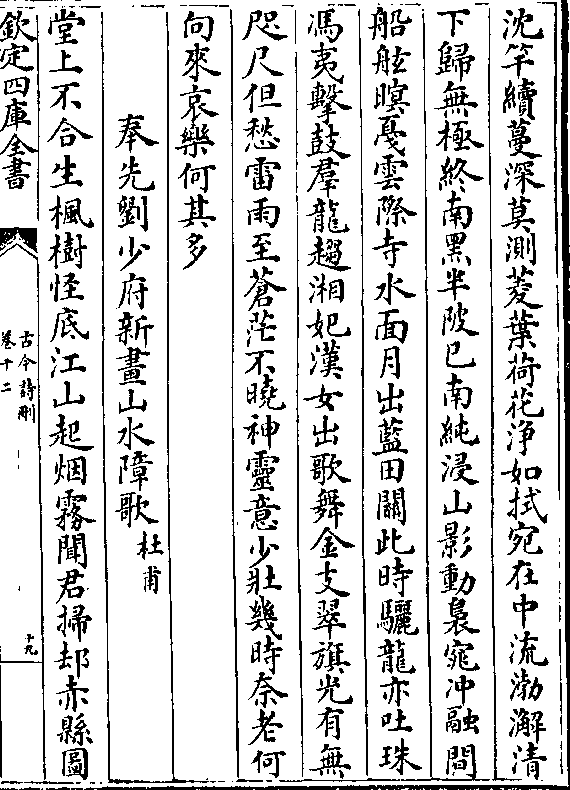 沈竿續蔓深莫測菱葉荷花淨如拭宛在中流渤澥清
下歸無極終南黑半陂已南純浸山影動裊窕冲融間
船舷暝戛雲際寺水面月出藍田關此時驪龍亦吐珠
馮夷擊鼓羣龍趨湘妃漢女出歌舞金支翠旗光有無
咫尺但愁雷雨至蒼茫不曉神靈意少壯幾時奈老何
向來哀樂何其多
奉先劉少府新畫山水障歌 杜甫
堂上不合生楓樹怪底江山起烟霧聞君掃却赤縣圖
欽定四庫全書
古今詩刪
卷十二
十九